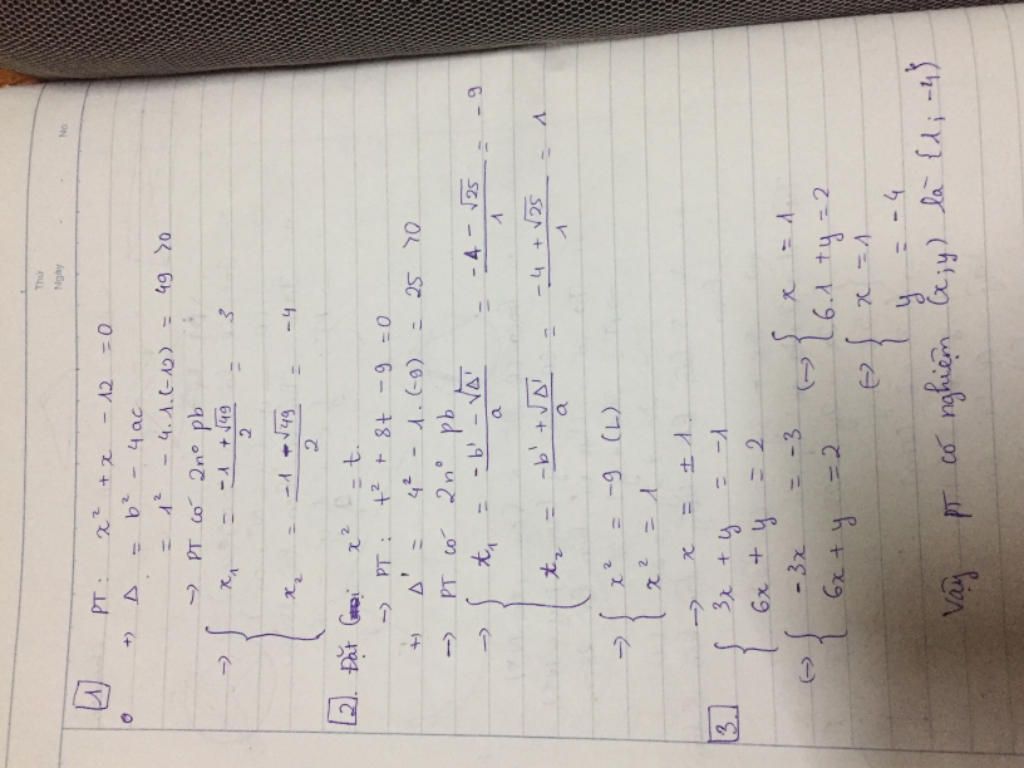 Thứ
Ngày
No.
1 PT: x² + x - 12 = 0
+) Δ = b² - 4ac
= 1² - 4.1.(-12) = 49 >0
→ PT có 2n⁰ pb
→ { x₁ = (-1 + √49)/2 = 3
x₂ = (-1 - √49)/2 = -4
2. Đặt x² = t.
→ PT: t² + 8t - 9 = 0
+) Δ' = 4² - 1.(-9) = 25 >0
→ PT có 2n⁰ pb
→ { t₁ = (-b' - √Δ')/a = (-4 - √25)/1 = -9
t₂ = (-b' + √Δ')/a = (-4 + √25)/1 = 1
→ { x² = -9 (L)
x² = 1
→ x = ±1
3. { 3x + y = -1
6x + y = 2
(→) { -3x = -3 (→) { x = 1
6x + y = 2 { 6.1 + y = 2
(→) { x = 1
y = -4
Vậy PT có nghiệm (x;y) là {1; -4}